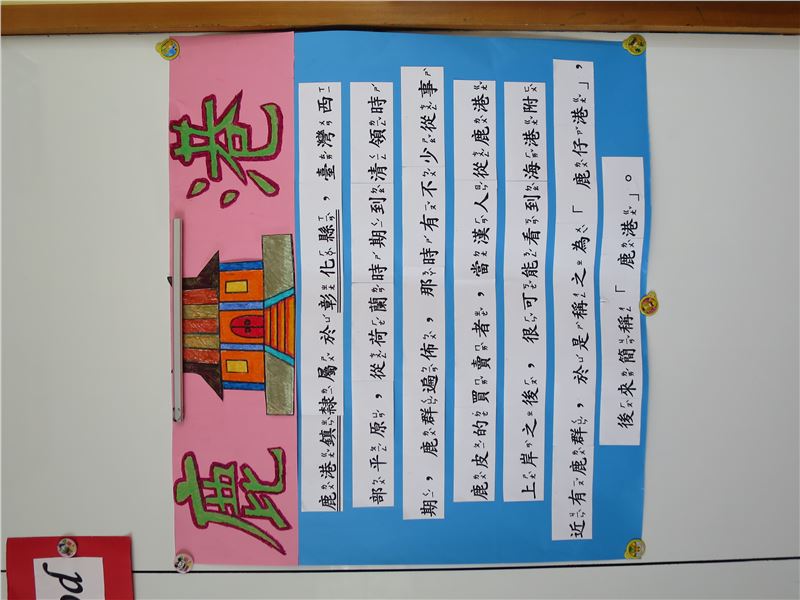 鹿港
鹿港鎮隸屬於彰化縣，臺灣西
部平原，從荷蘭時期到清領時
期，鹿群遍佈，那時有不少從事
鹿皮的買賣者，當漢人從鹿港
上岸之後，很可能看到海港附
近有鹿群，於是稱之為「鹿仔港」，
後來簡稱「鹿港」。